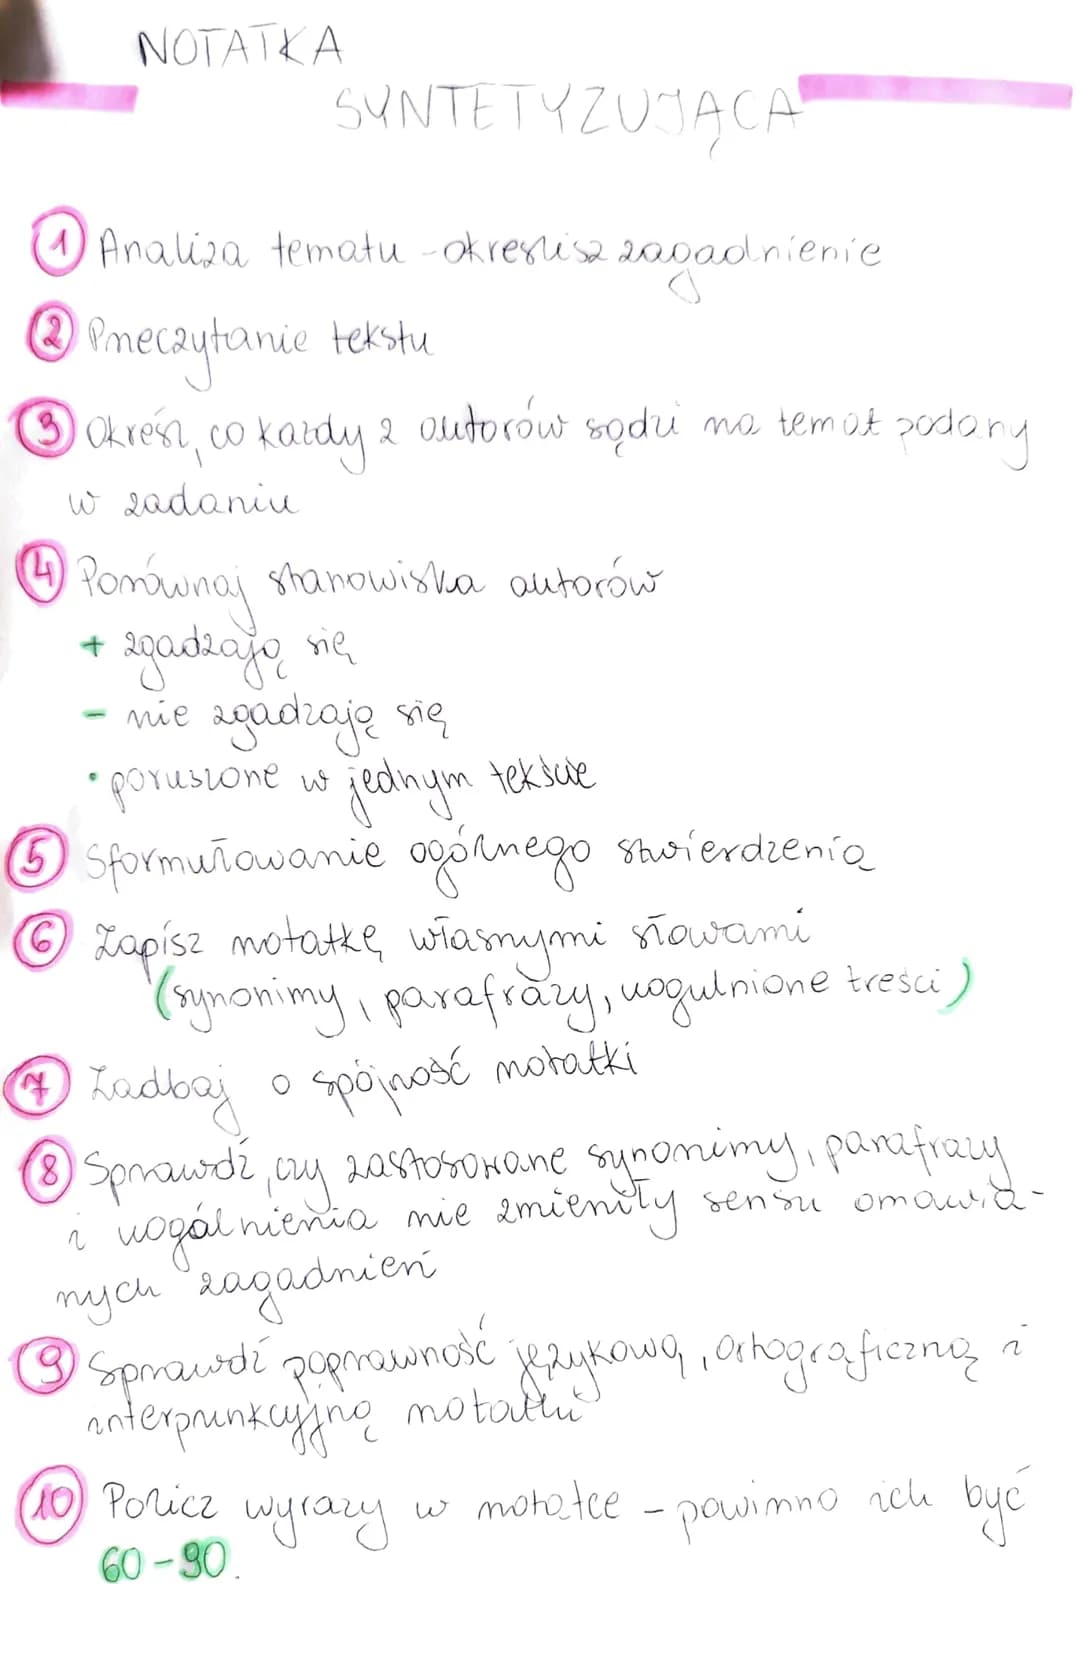 NOTATKA
SYNTETYZUJĄCA
1 Analiza tematu - określisz zagadnienie
2 Przeczytanie tekstu
3 Określ, co każdy z autorów sądzi na temat podany
w zadaniu
4 Porównaj stanowiska autorów
+ zgadzają się
- nie zgadzają się
• poruszone w jednym tekście
5 Sformułowanie ogólnego stwierdzenia
6 Zapisz notatkę własnymi słowami
(synonimy, parafrazy, uogulnione treści)
7 Zadbaj o spójność notatki
8 Sprawdź, czy zastosowane synonimy, parafrazy
i uogólnienia nie zmieniły sensu omawia-
nych zagadnień
9 Sprawdź poprawność językową, ortograficzną i
interpunkcyjną notatki
10 Policz wyrazy w notatce - powinno ich być
60-90.